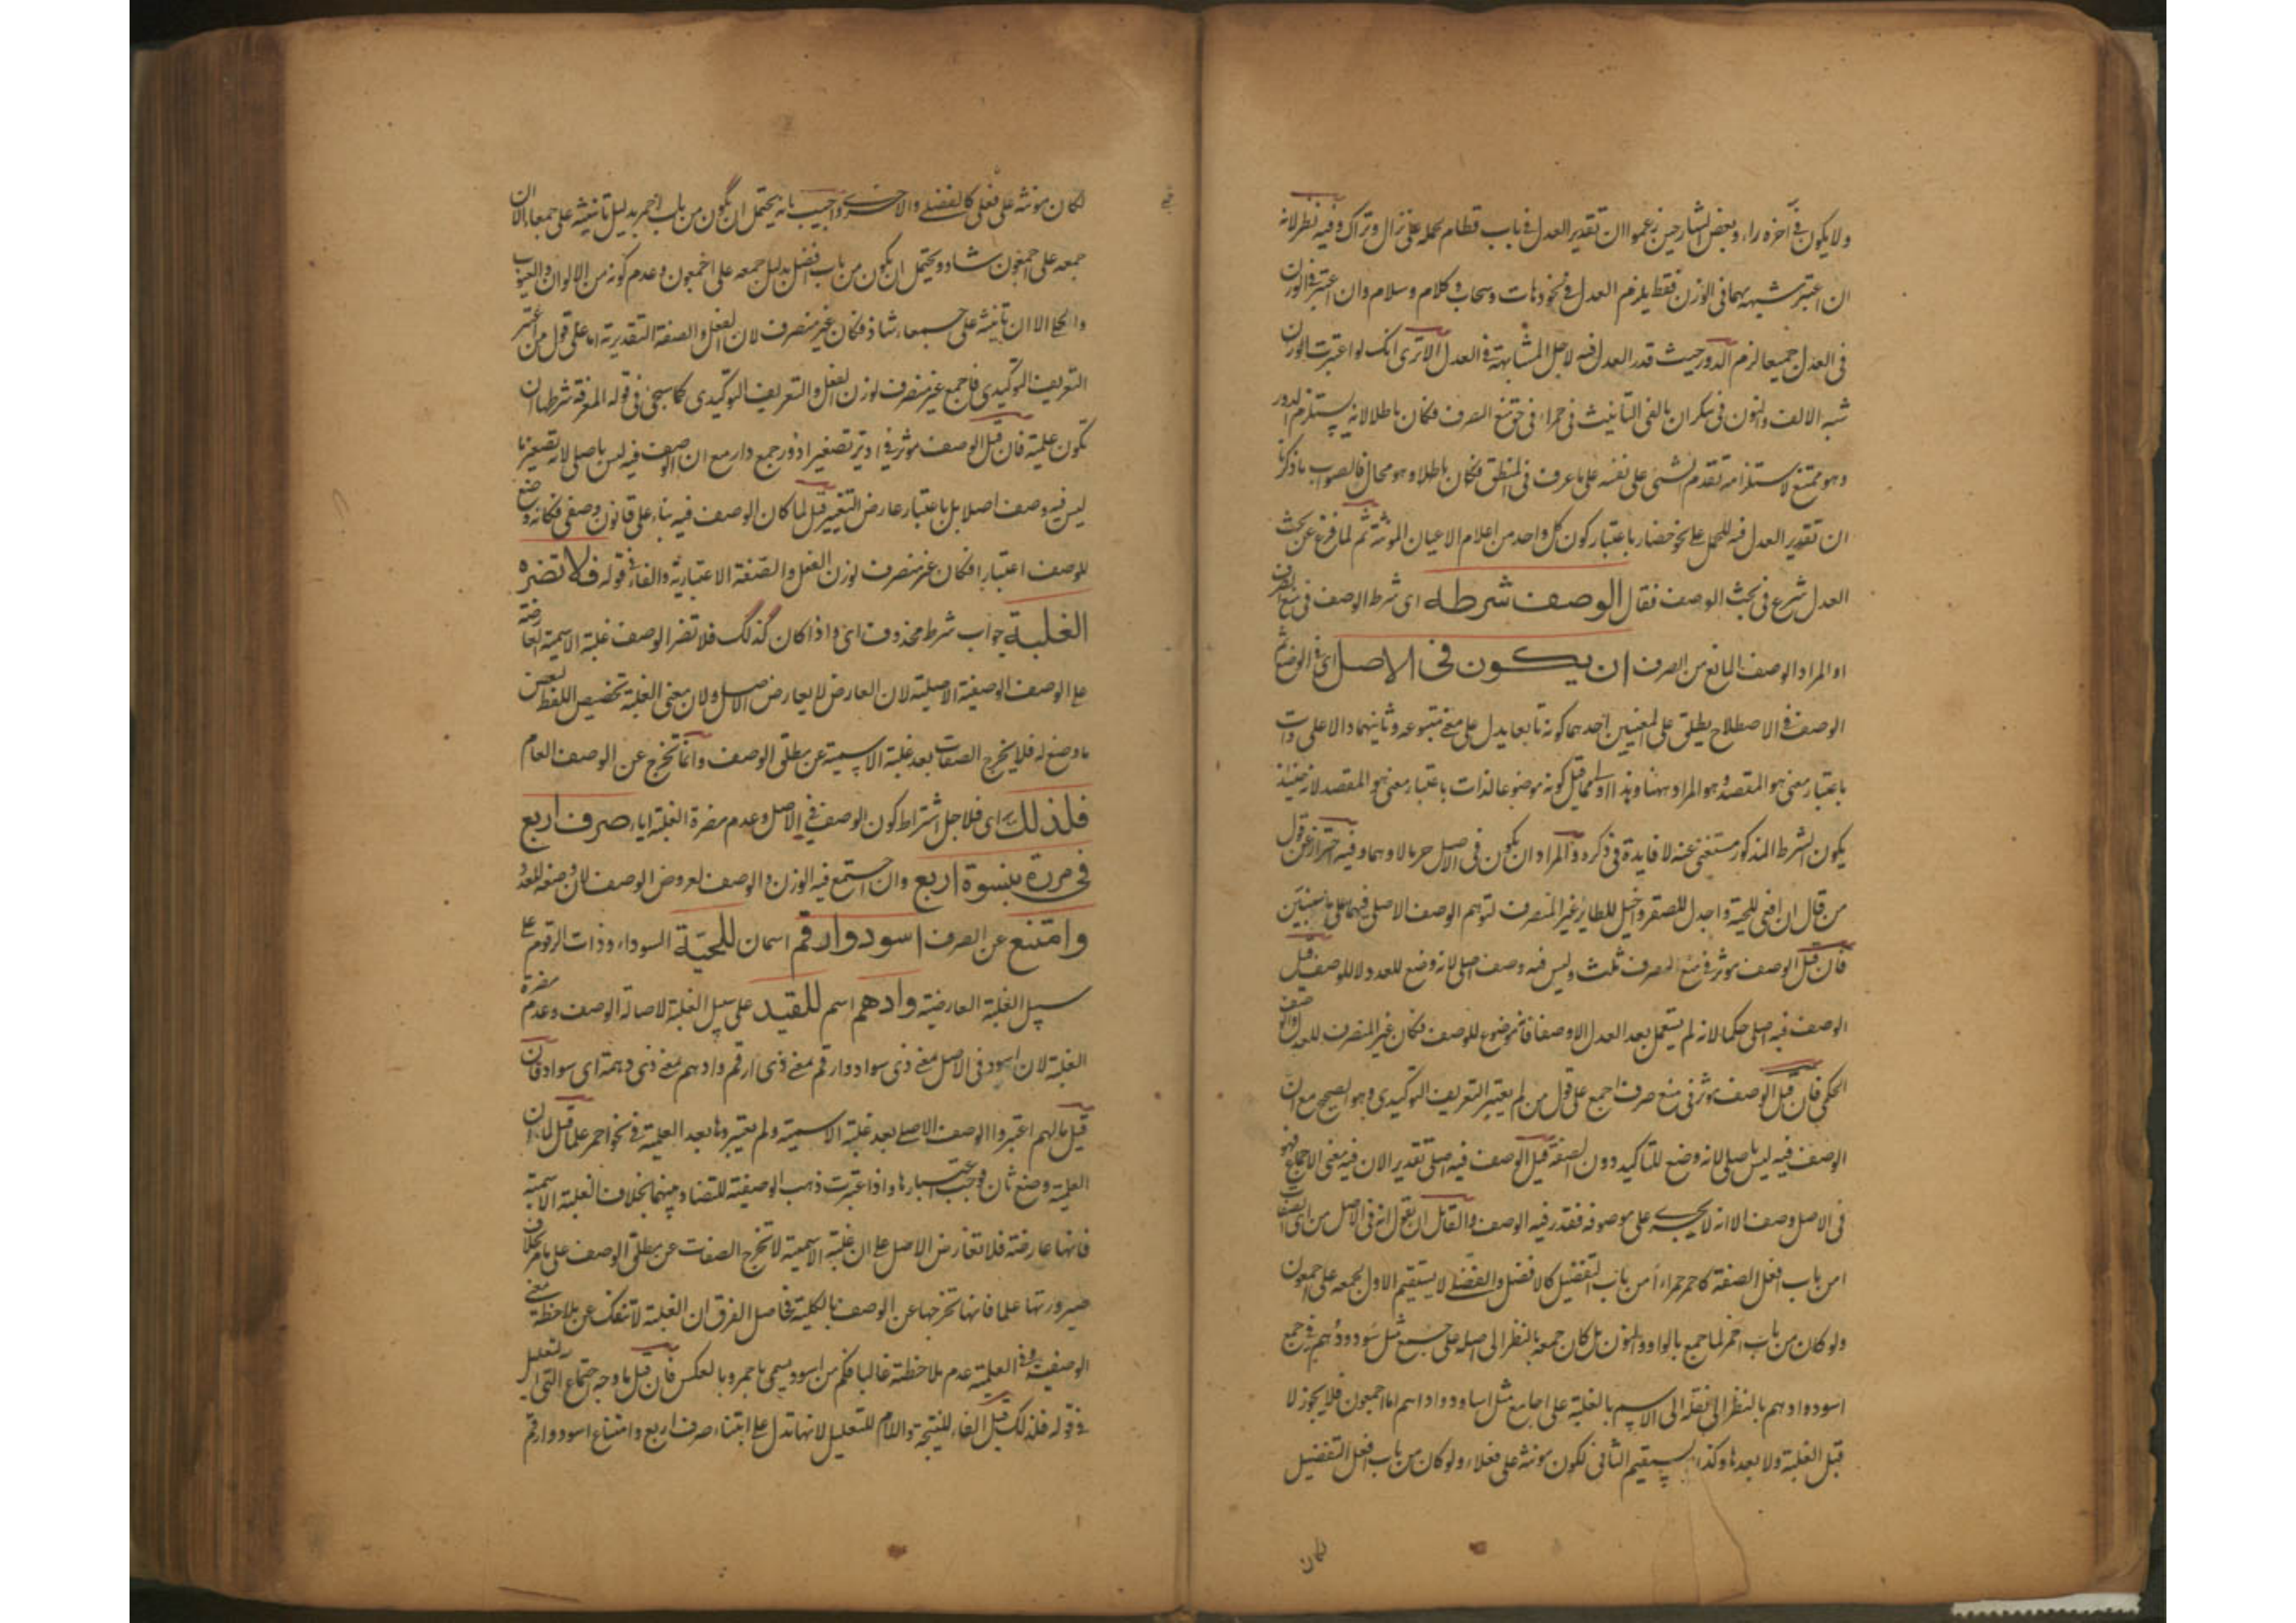 ولا يكون فى آخره راء وبعض الشارحين زعموا ان تقدير العدل فى باب قطام بحمله على نزال وتراك وفيه نظر لانه
ان اعتبر مشبهه بهما فى الوزن فقط يلزم العدل فى نحو ذهات وسحاب وكلام وسلام وان اعتبر فى الوزن
فى العدل جميعا لزم الدور حيث قدر العدل فيه لاجل المشابهة فى العدل الا ترى انك لو اعتبرت الوزن
شبه الالف والنون فى سكران بالفى التانيث فى حمراء فى حق منع الصرف فكان باطلا لانه يستلزم الدور
وهو ممتنع لاستلزامه تقدم الشئ على نفسه على ما عرف فى المنطق فكان باطلا وهو محال فالصواب ما ذكرنا
ان تقدير العدل فيه للحمل على نحو حضار باعتبار كون كل واحد من اعلام الاعيان المونثة ثم لما فرغ عن بحث
العدل شرع فى بحث الوصف فقال الوصف شرطه اى شرط الوصف فى منع الصرف
او المراد الوصف المانع من الصرف ان يكون فى الاصل اى فى الوضع ثم
الوصف فى الاصطلاح يطلق على المعنيين احدهما كونه تابعا يدل على معنى فى متبوعه وثانيهما دالا على ذات
باعتبار معنى هو المقصد وهو المراد ههنا وهذا اولى مما قيل كونه موضوعا لذات باعتبار معنى هو المقصد لانه حينئذ
يكون الشرط المذكور مستغنى عنه لا فايدة فى ذكره والمراد ان يكون فى الاصل حرما لا وهما وفيه احتراز عن قول
من قال ان افعى للحية واجدل للصقر واخيل للطاير غير المنصرف لتوهم الوصف الاصلى فيها على ما سنبين
فان قيل الوصف موثر فى منع الصرف ثلث وليس فيه وصف اصلى لانه وضع للعدد لا للوصف قيل
الوصف فيه اصلى حكما لانه لم يستعمل بعد العدل الا وصفا فانه موضوع للوصف فكان غير المنصرف للعدل والوصف
الحكمى فان قيل الوصف موثر فى منع صرف اجمع على قول من لم يعتبر التعريف التوكيدى وهو الصحيح مع ان
الوصف فيه ليس باصلى لانه وضع للتاكيد دون الصفة قيل الوصف فيه اصلى تقديرا لان فيه معنى الاجماع فهو
فى الاصل وصف الا انه لا يجرى على موصوفه فقدر فيه الوصف والقائل ان يقول انه فى الاصل من اى الصفات
امن باب افعل الصفة كاحمر حمراء ام من باب التفضيل كالافضل والفضلى لا يستقيم الاول لجمعه على اجمعون
ولو كان من باب احمر لما جمع بالواو والنون بل كان جمعه بالنظر الى اصله على جمع مثل سود ودهم فى جمع
اسود وادهم بالنظر الى نقله الى الاسم بالغلبة على اجامع مثل اساود واداسم اما اجمعون فلا يجوز لا
قبل الغلبة ولا بعدها وكذا لا يستقيم الثانى لكون مونثه على فعلاء ولو كان من باب افعل التفضيل
لكان
لكان مونثه على فعلى كالفضلى والاخرى واجيب بانه يحتمل ان يكون من باب احمر بدليل تانيثه على جمعاء الا ان
جمعه على اجمعون شاذ ويحتمل ان يكون من باب افضل بدليل جمعه على اجمعون وعدم كونه من الالوان والعيوب
والحلى الا ان تانيثه على جمعاء شاذ فكان غير منصرف لان الفعل والصفة التقديرية اما على قول من اعتبر
التعريف التوكيدى فاجمع غير منصرف لوزن الفعل والتعريف التوكيدى كما سيجئ فى قوله المعرفة شرطها ان
تكون علمية فان قيل الوصف موثر فى ادير تصغير ادور جمع دار مع ان الوصف فيه ليس باصلى لانه تصغير ما
ليس فيه وصف اصلا بل باعتبار عارض التغيير قيل لما كان الوصف فيه بناء على قانون وصفى فكانه وضع
للوصف اعتبارا فكان غير منصرف لوزن الفعل والصفة الاعتبارية والفاء فى قوله فلا تضره
الغلبة جواب شرط محذوف اى واذا كان كذلك فلا تضر الوصف غلبة الاسمية العارضة
على الوصف الوصفية الاصلية لان العارض لا يعارض الاصل ولان معنى الغلبة تخصيص اللفظ ببعض
ما وضع له فلا يخرج الصفات بعد غلبة الاسمية عن مطلق الوصف وانما تخرج عن الوصف العام
فلذلك اى فلاجل اشتراط كون الوصف فى الاصل وعدم مضرة الغلبة اياه صرف اربع
فى مررت بنسوة اربع وان اجتمع فيه الوزن والوصف لعروض الوصف لان وضعه للعدد
وامتنع عن الصرف اسود وارقم اسمان للحية السوداء وذات الرقوم على
سبيل الغلبة العارضية وادهم اسم للقيد على سبيل الغلبة لاصالة الوصف وعدم مضرة
الغلبة لان اسود فى الاصل بمعنى ذى سواد وارقم بمعنى ذى ارقم وادهم بمعنى ذى دهمة اى سواد فان
قيل ما لهم اعتبروا الوصف الاصلى بعد غلبة الاسمية ولم يعتبروها بعد العلمية فى نحو احمر علما قيل لان
العلمية وضع ثان فوجب اعتبارها واذا اعتبرت ذهب الوصفية للتضاد بينهما بخلاف الغلبة الاسمية
فانها عارضة فلا تعارض الاصل على ان غلبة الاسمية لا تخرج الصفات عن مطلق الوصف على ما مر بخلاف
صيرورتها علما فانها تخرجها عن الوصف بالكلية فحاصل الفرق ان الغلبة لا تنفك عن ملاحظة معنى
الوصفية وفى العلمية عدم ملاحظته غالبا فكم من اسود يسمى باحمر وبالعكس فان قيل ما وجه اجتماع التى التعليل
فى قوله فلذلك قيل الفاء للنتيجة واللام للتعليل لانها تدل على ابتناء صرف اربع وامتناع اسود وارقم